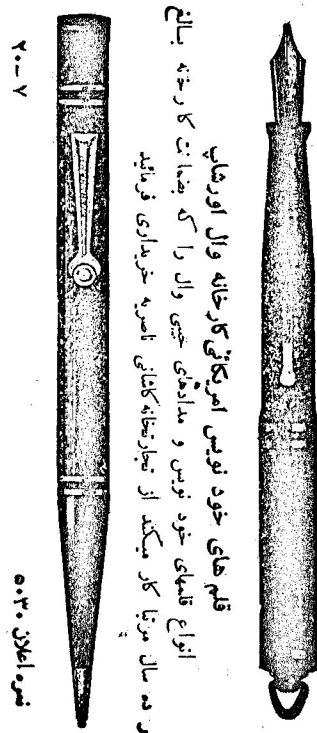 قلم های خود نویس امریکائی کارخانه وال اورشاپ
انواع قلمهای خود نویس و مدادهای جیبی وال را که بضمانت کارخانه بالغ
بر ده سال مرتبا کار میکند از تجارتخانه کاشانی ناصریه خریداری فرمائید
نمره اعلان ۵۰۳۰
۲۰ــ۷